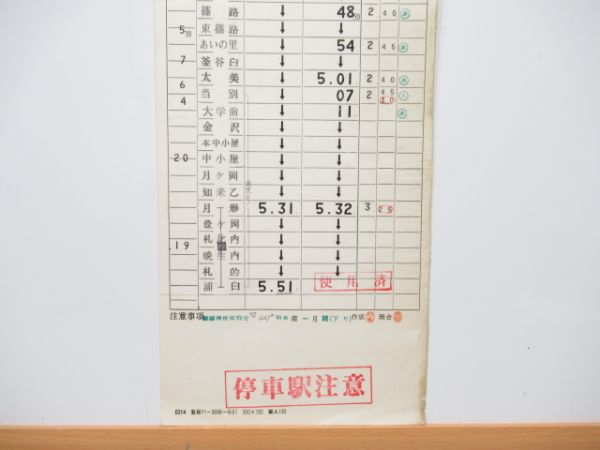 篠路 ↓ 48 10 2 40
5 10 東篠路 ↓ ↓
あいの里 ↓ 54 2 45
7 釜谷臼 ↓ ↓
太美 ↓ 5.01 2 40
6
当別 ↓ 07 2 45 30
4
大学前 ↓ 11
金沢 ↓ ↓
本中小屋 ↓ ↓
20 中小屋 ↓ ↓
月ケ岡 ↓ ↓
知来乙 ↓ ↓
月形 5.31 5.32 3 25
豊ケ岡 ↓ ↓
19 札比内 ↓ ↓
晩生内 ↓ ↓
札的 ↓ ↓
使用済
浦臼 5.51
注意事項
月 作成 照合
停車駅注意